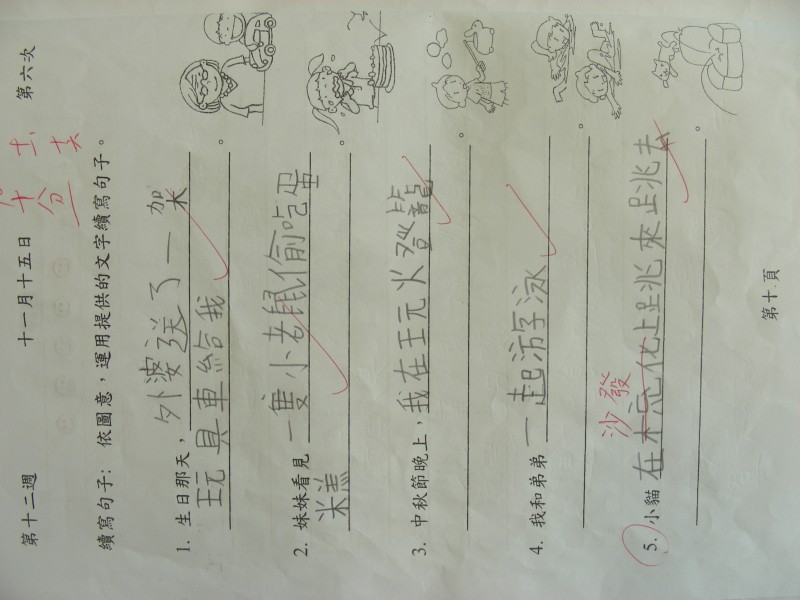 第十二週 十一月十五日 第六次
續寫句子: 依圖意，運用提供的文字續寫句子。
1. 生日那天，外婆送了一架
玩具車給我。
2. 妹妹看見一隻小老鼠偷吃蛋
糕。
3. 中秋節晚上，我在玩燈籠。
4. 我和弟弟一起游泳。
沙發
5. 小貓在上跳來跳去。
第十頁